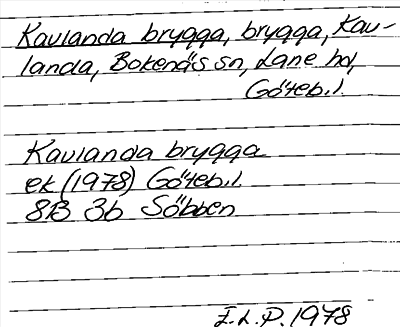 Kavlanda brygga, brygga, Kav-
landa, Bokenäs sn, Lane hd,
Göteb.l.
Kavlanda brygga
ek (1978) Göteb.l.
8B 3b Söbben
I.L.P. 1978